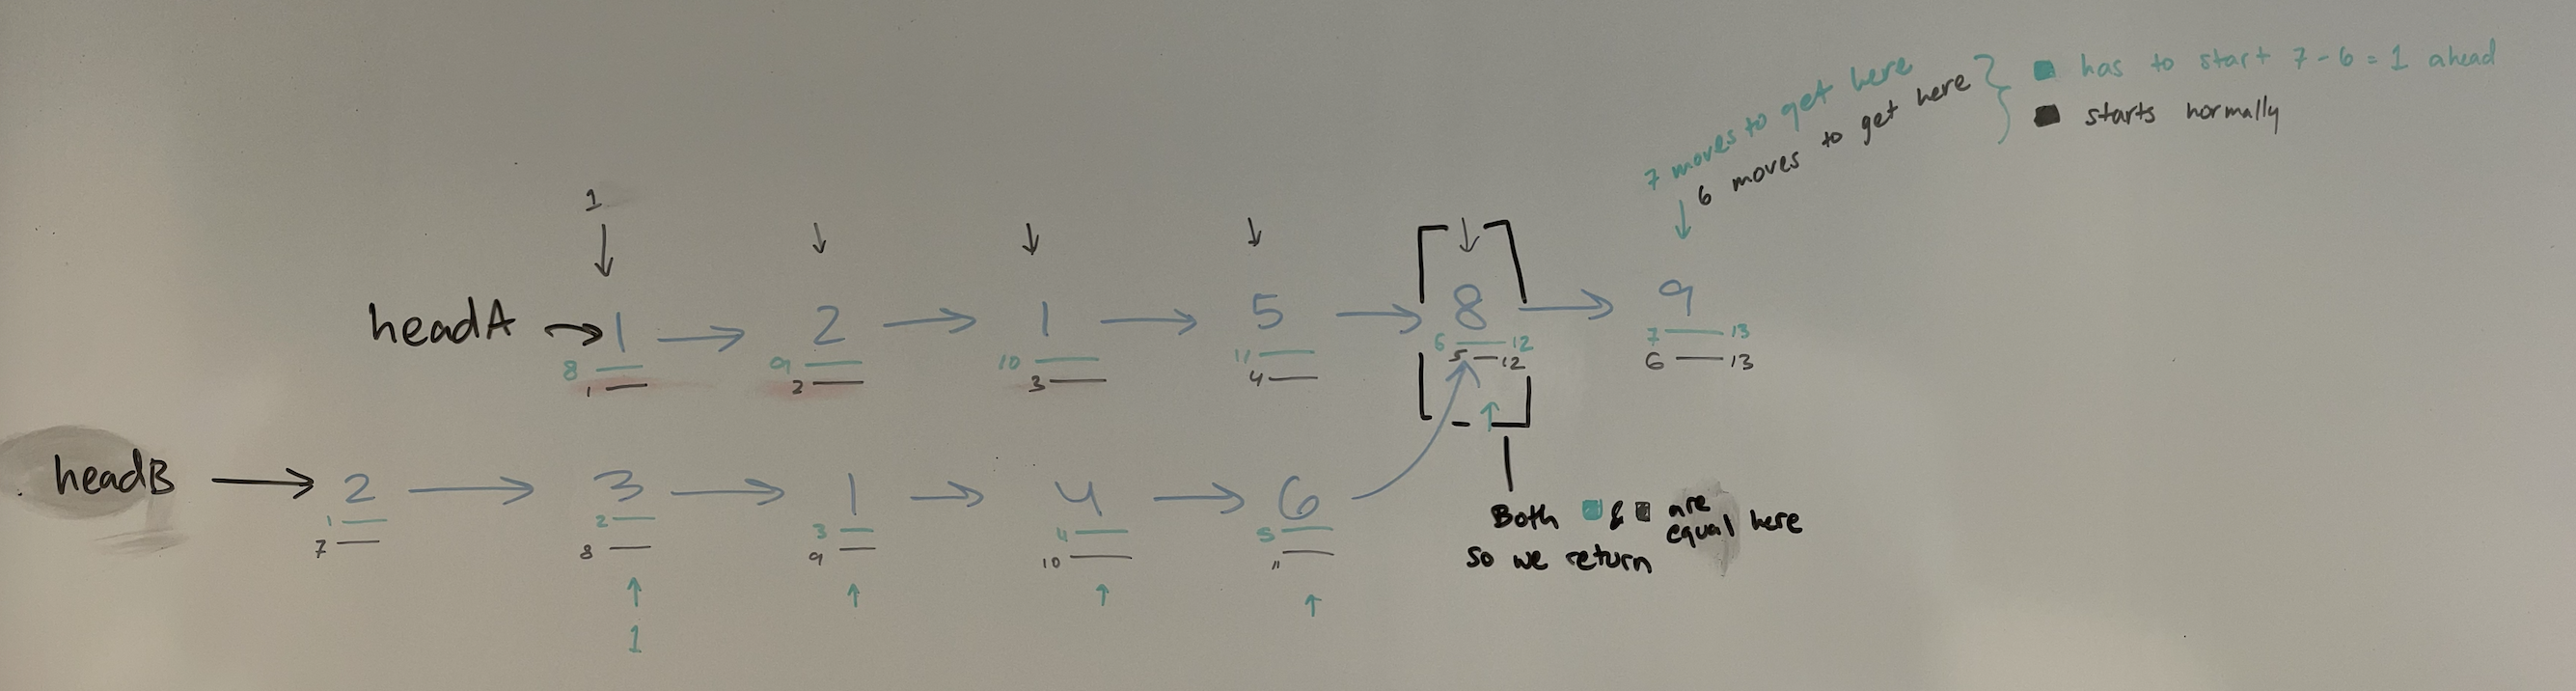 7 moves to get here
6 moves to get here
has to start 7 - 6 = 1 ahead
starts normally
1
headA → 1 → 2 → 1 → 5 → 8 → 9
8 9 10 11 6 12 7 13
1 2 3 4 5 12 6 13
headB → 2 → 3 → 1 → 4 → 6
1 2 3 4 5
7 8 9 10 11
1
Both & are
equal here
so we return